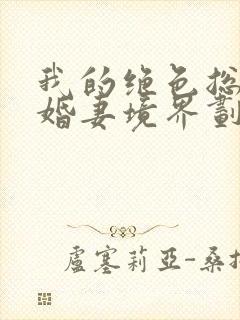 我的绝色总
婚妻境界劃
盧塞莉亞-桑抗